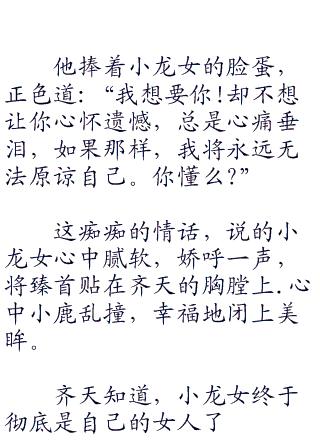 他捧着小龙女的脸蛋，
正色道：“我想要你!却不想
让你心怀遗憾，总是心痛垂
泪，如果那样，我将永远无
法原谅自己。你懂么?”
这痴痴的情话，说的小
龙女心中腻软，娇呼一声，
将臻首贴在齐天的胸膛上.心
中小鹿乱撞，幸福地闭上美
眸。
齐天知道，小龙女终于
彻底是自己的女人了